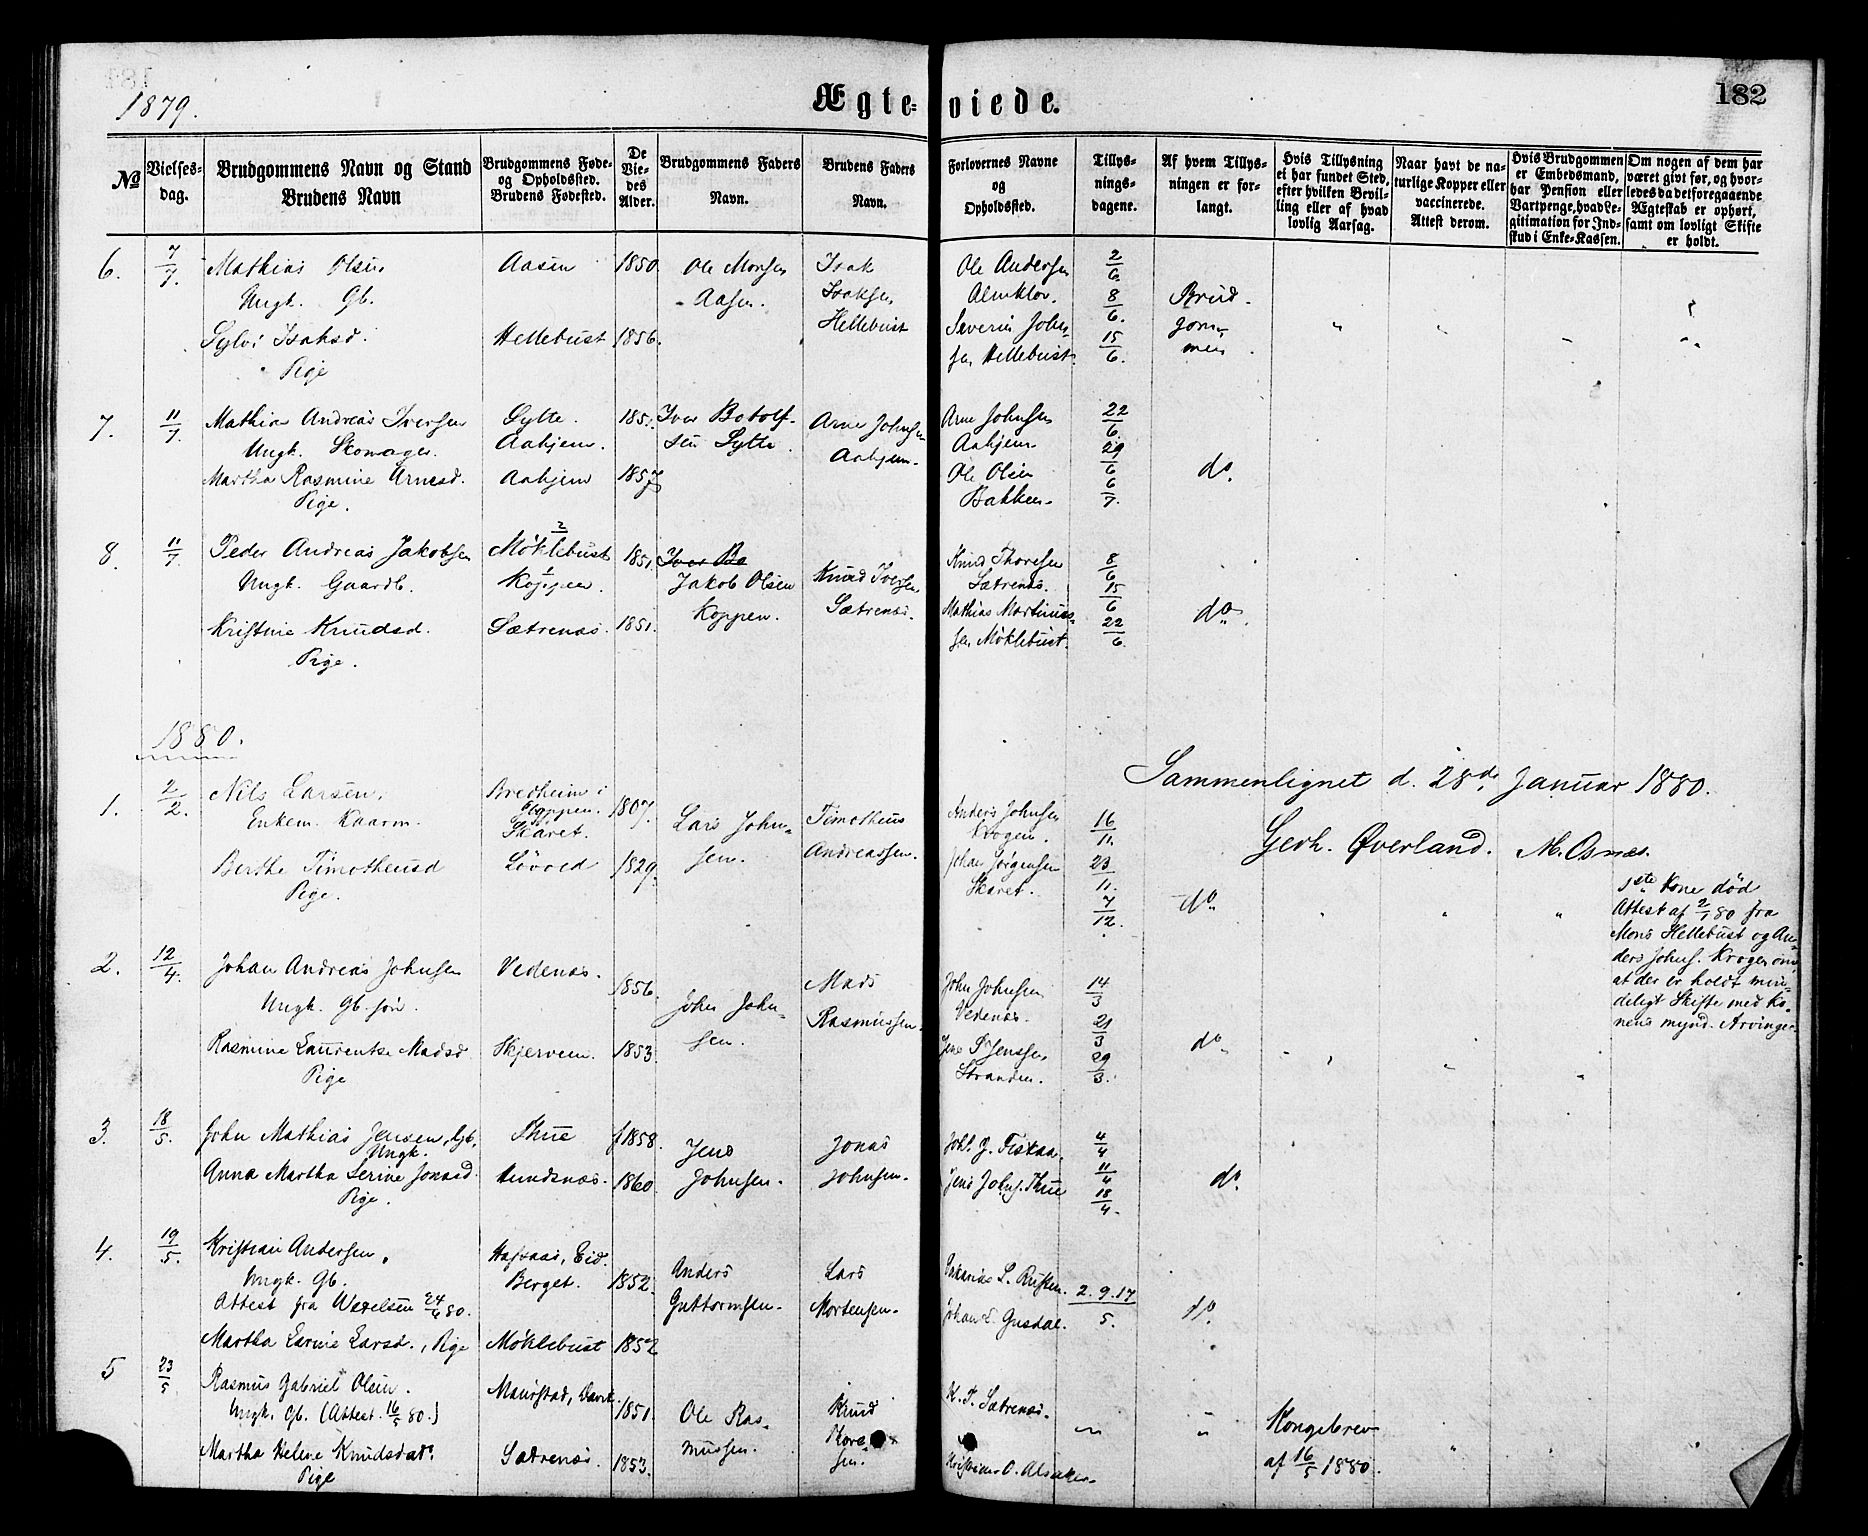 1879.
Ægteviede.
182
№
Vielses-
dag.
Brudgommens Navn og Stand
Brudens Navn
Brudgommens Føde-
og Opholdssted.
Brudens Fødested.
De
Vie-
des
Alder.
Brudgommens Faders
Navn.
Brudens Faders
Navn.
Forlovernes Navne
og
Opholdssted.
Tillys-
nings-
dagene.
Af hvem Tillys-
ningen er for-
langt.
Hvis Tillysning
ei har fundet Sted,
efter hvilken Bevil-
ling eller af hvad
lovlig Aarsag.
Naar havt de na-
turlige Kopper eller
vaccinerede.
Attest derom.
Hvis Brudgommen
er Embedsmand,
har Pension eller
Vartpenge, hvad Le-
gitimation for Ind-
skud i Enke-Kassen.
Om nogen af dem har
været givt før, og hvor-
ledes da det foregaaende
Ægteskab er ophørt,
samt om lovligt Skifte
er holdt.
6.
7/7.
Mathias Olsen
Ungk. Gb.
Sylvi Isaksd.
Pige
Aasen
Hellebust
1850.
1856.
Ole Monsen
Aasen.
Isak
Isaksen
Hellebust
Ole Andersen
Almklov.
Severin John-
sen Hellebust.
2/6
8/6.
15/6.
Brud-
gom-
men
7.
11/7.
Mathias Andreas Iversen
Ungk. Skomager.
Martha Rasmine Arnesd.
Pige.
Sytte.
Aahjem.
Aahjem
1851.
1857
Iver Botolf-
sen Sytte.
Arne Johnsen
Aahjem.
Arne Johnsen
Aahjem
Ole Olsen
Bakken.
22/6
29/6
6/7.
do.
8.
11/7.
Peder Andreas Jakobsen
Ungk. Gaardb.
Kristine Knudsd.
Pige.
2
Møklebust
1
Koppen.
Sætrenæs.
1851.
1851.
Iver Bo
Jakob Olsen
Koppen.
Knud Iversen
Sætrenæs.
Knud Thoresen
Sætrenæs.
Mathias Martinus-
sen Møklebust.
8/6
15/6
22/6.
do.
1880.
Sammenlignet d. 28de Januar 1880.
Gerh. Øverland. M. Osnæs.
1.
2/2.
Nils Larsen,
Enkem. Kaarm.
Berthe Timotheusd
Pige.
Bredheim i
Gloppen.
Skaret.
Løvold
1807.
1829.
Lars John-
sen.
Timotheus
Andreassen.
Anders Johnsen
Krogen.
Johan Jørgensen
Skaret.
16/11.
23/11.
7/12.
do.
1ste Kone død
Attest af 2/1 80 fra
Mons Hellebust og An-
ders Johns. Krogen om,
at der er holdt min-
deligt Skifte med Ko-
nens mynd. Arvinger.
2.
12/4.
Johan Andreas Johnsen
Ungk. Gb. søn.
Rasmine Laurentse Madsd
Pige
Vedenæs.
Skjervem.
1856.
1853.
John John-
sen.
Mads
Rasmussen.
John Johnsen
Vedenæs.
Jens P. Jenssen
Stranden.
14/3
21/3
29/3.
do.
3.
18/5.
John Mathias Jensen, Gb.
Ungk.
Anna Martha Serine Jonasd.
Pige.
Thue
Hundsnæs.
f 1858.
1860.
Jens
Johnsen.
Jonas
Johnsen.
Johs. J. Fiskaa.
Jens Johns. Thue
4/4
11/4
18/4.
do.
4.
19/5.
Kristian Andersen,
Ungk. Gb.
Attest fra Wexelsen 24/4 80.
Martha Larine Larsd., Pige
Eid.
Berget.
Møklebust
1852.
1852
Anders
Guttormsen.
Lars
Mortensen.
Johan L. Gusdal.
2. 9. 17/5.
do.
5
23/5
Rasmus Gabriel Olsen.
Ungk. Gb. (Attest 16/5 80.)
Martha Helene Knudsdatr.
Pige
Maurstad, Davik.
Sætrenæs.
1851.
1853.
Ole Ras-
mussen.
Knud
Thore-
sen.
K. T. Sætrenæs.
Kristian O. Alsaker.
Kongebrev
af 16/5 1880.